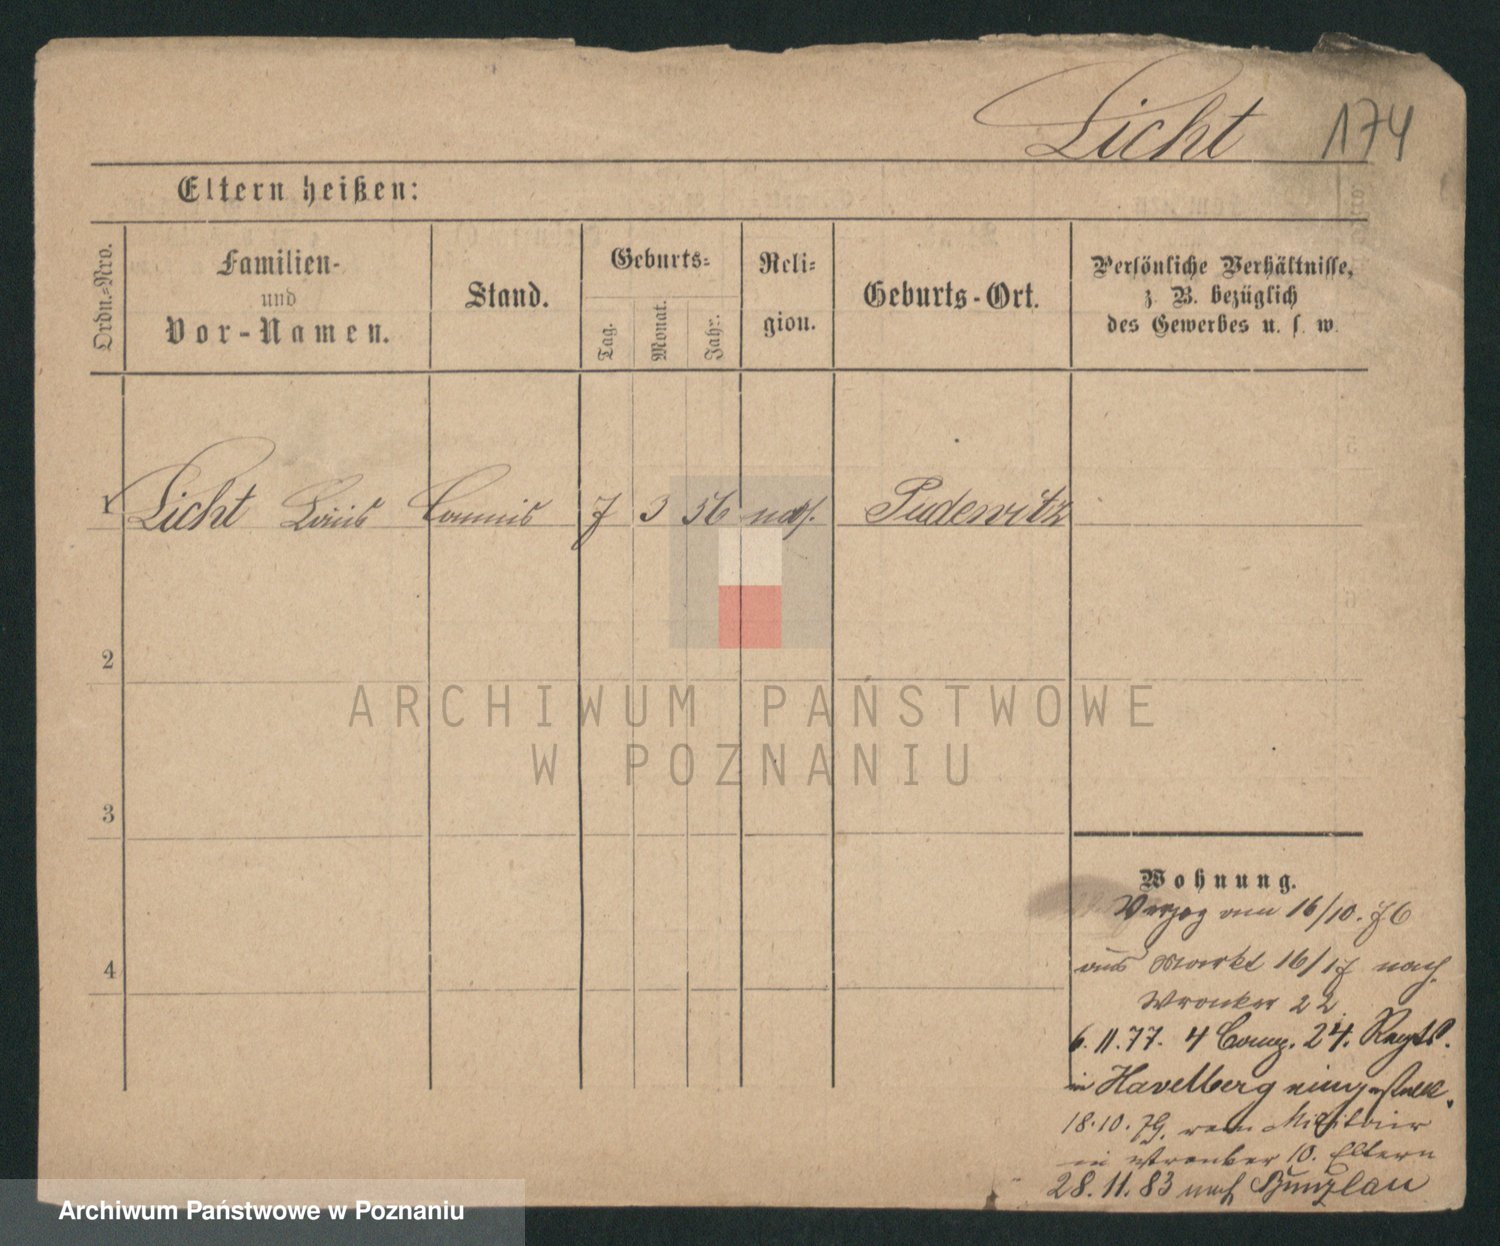 Licht 174
Eltern heißen:
Ordn.-Nro.
Familien-
und
Vor-Namen.
Stand.
Geburts-
Tag.
Monat.
Jahr.
Reli-
gion.
Geburts-Ort.
Persönliche Verhältnisse,
z. B. bezüglich
des Gewerbes u. s. w.
1 Licht Louis Commis 7 3 56 mos. Pudewitz
2
ARCHIWUM PAŃSTWOWE
W POZNANIU
3
4
Wohnung.
Verzog am 16/10. 76
aus Markt 16/17 nach
Wronker 22
6. 11. 77. 4 Comp. 24. Regts.
in Havelberg eingestellt.
18. 10. 79. vom Militair
in Wronker 10. Eltern
28. 11. 83 nach Bunzlau
Archiwum Państwowe w Poznaniu